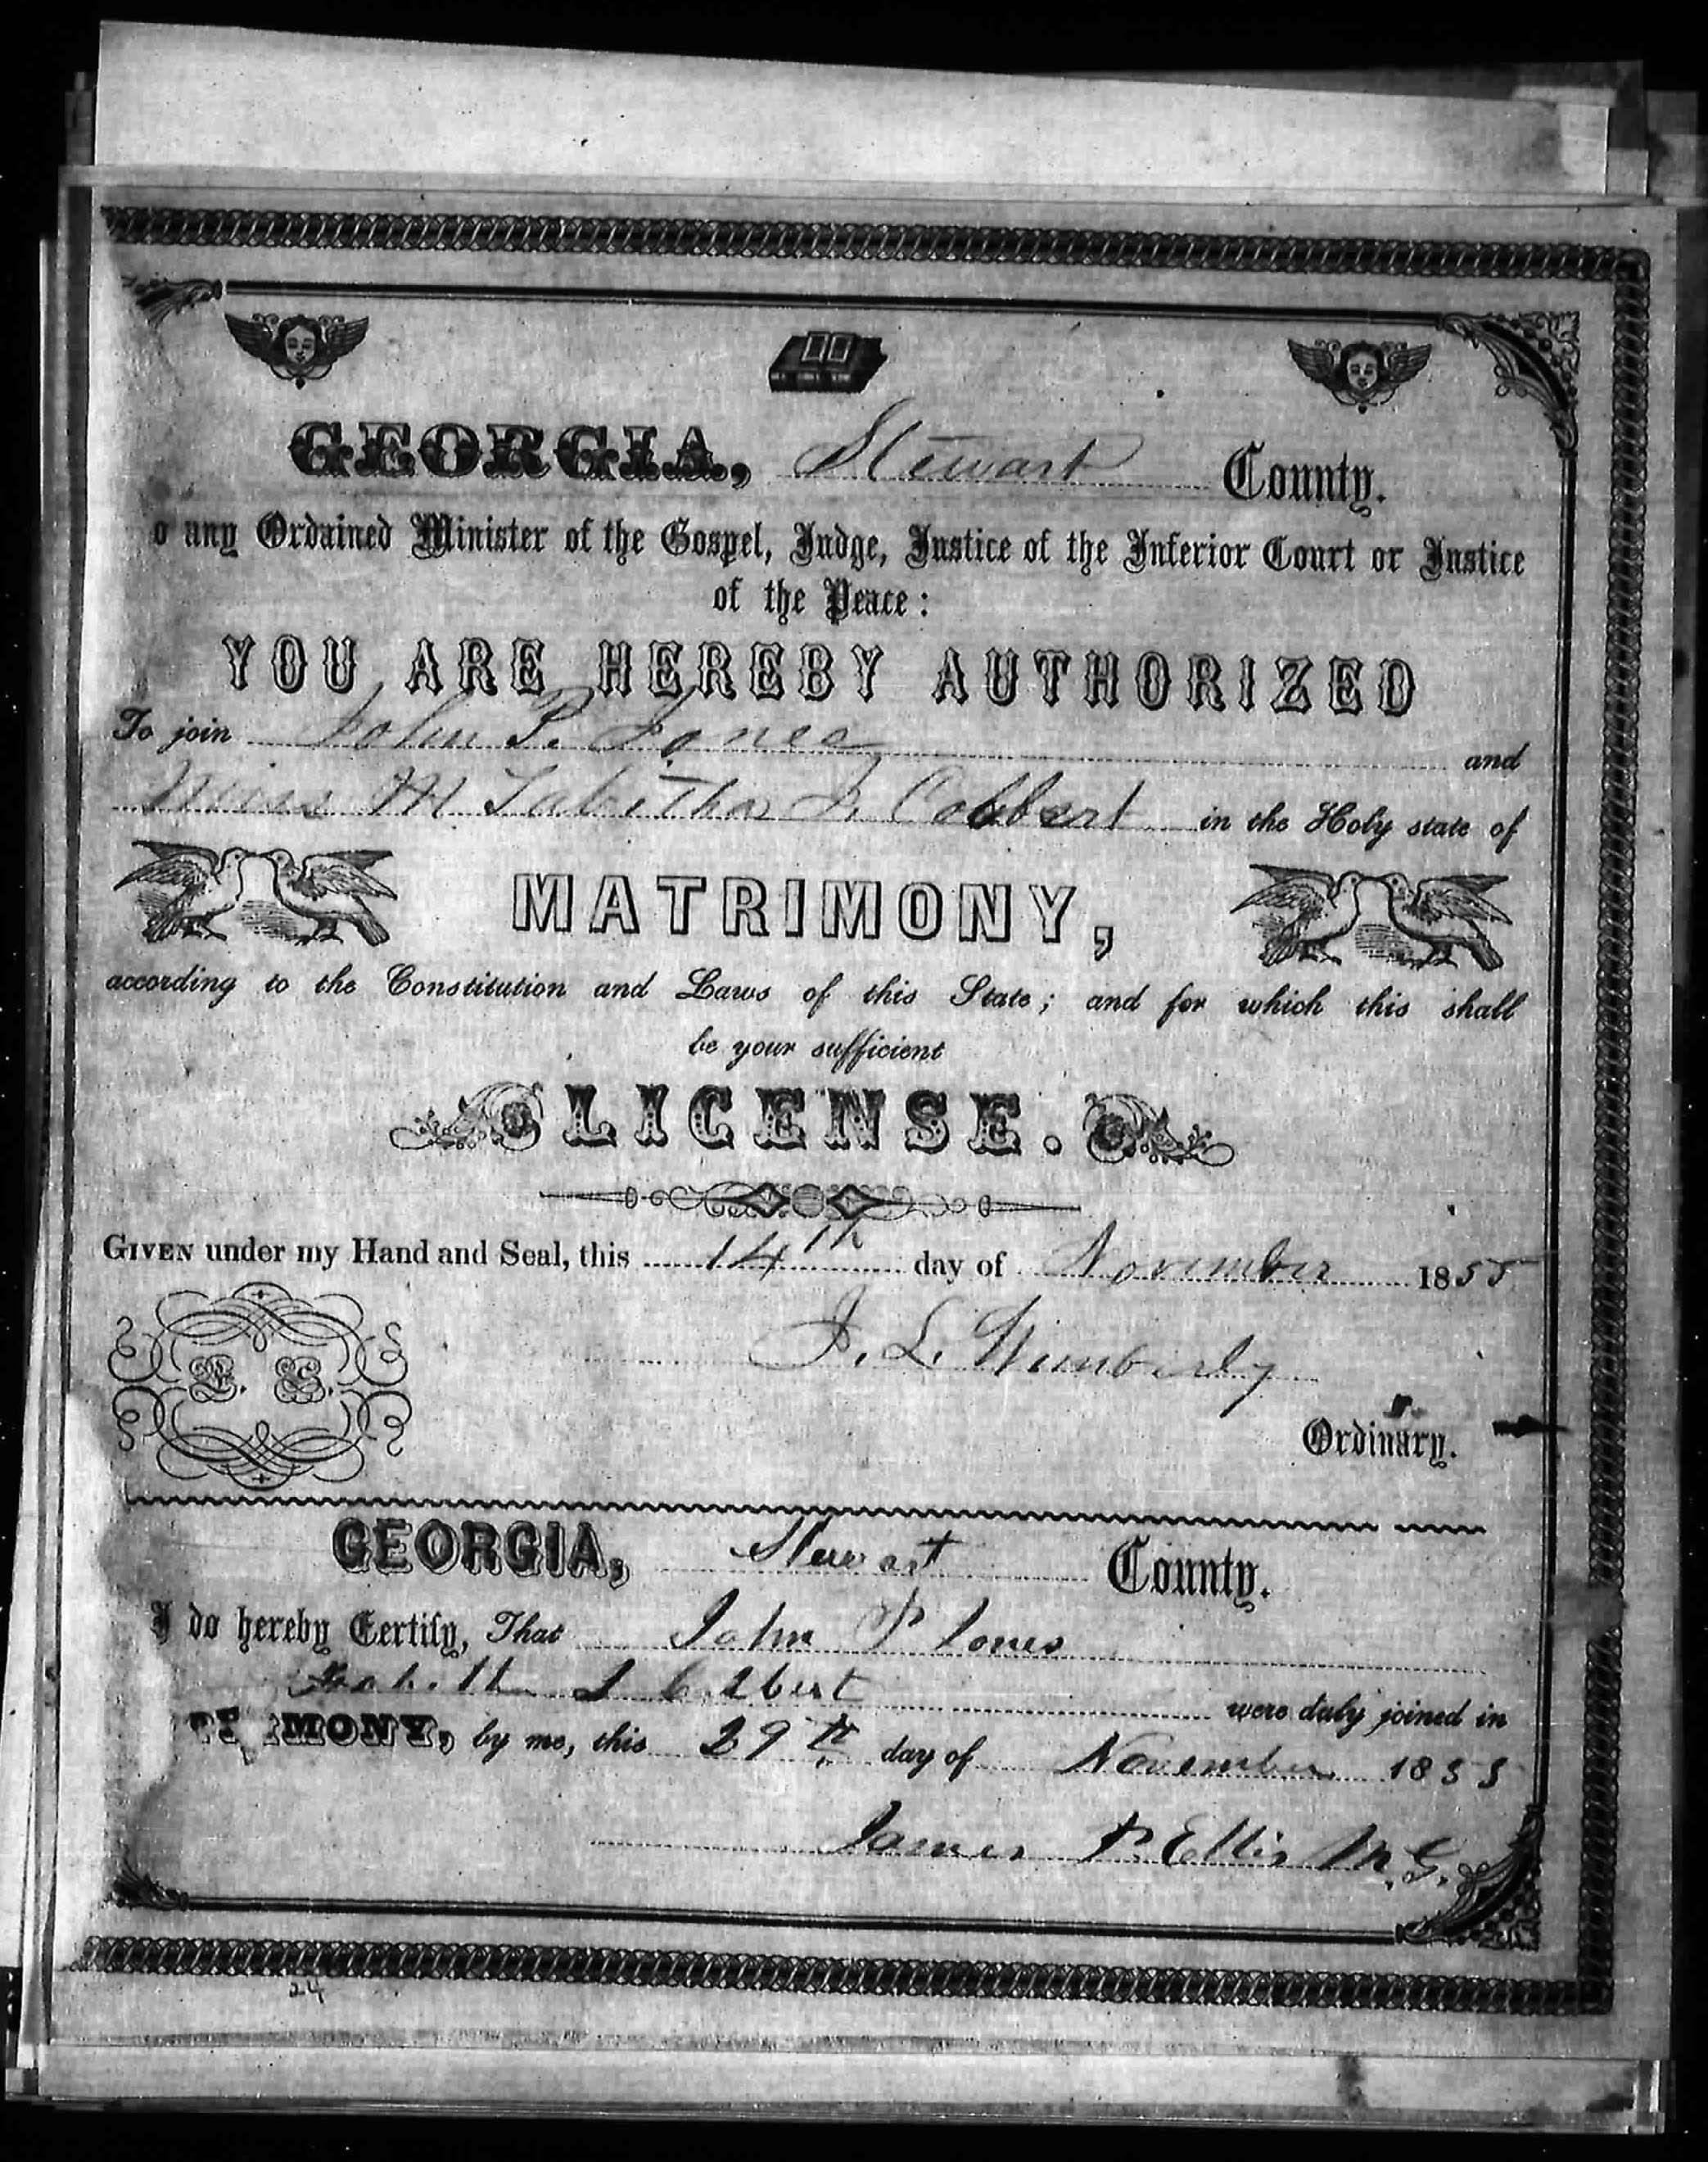 GEORGIA, Stewart County.
o any Ordained Minister of the Gospel, Judge, Justice of the Inferior Court or Justice
of the Peace:
YOU ARE HEREBY AUTHORIZED
To join John P. Jones and
Miss M Tabitha J. Colbert in the Holy state of
MATRIMONY,
according to the Constitution and Laws of this State; and for which this shall
be your sufficient
LICENSE.
GIVEN under my Hand and Seal, this 14th day of November 1855
J. L. Wimberly
L. S.
Ordinary.
GEORGIA, Stewart County.
I do hereby Certify, That John P Jones
J Colbert were duly joined in
MONY, by me, this 29th day of November 1855
James P. Ellis M.G.
24